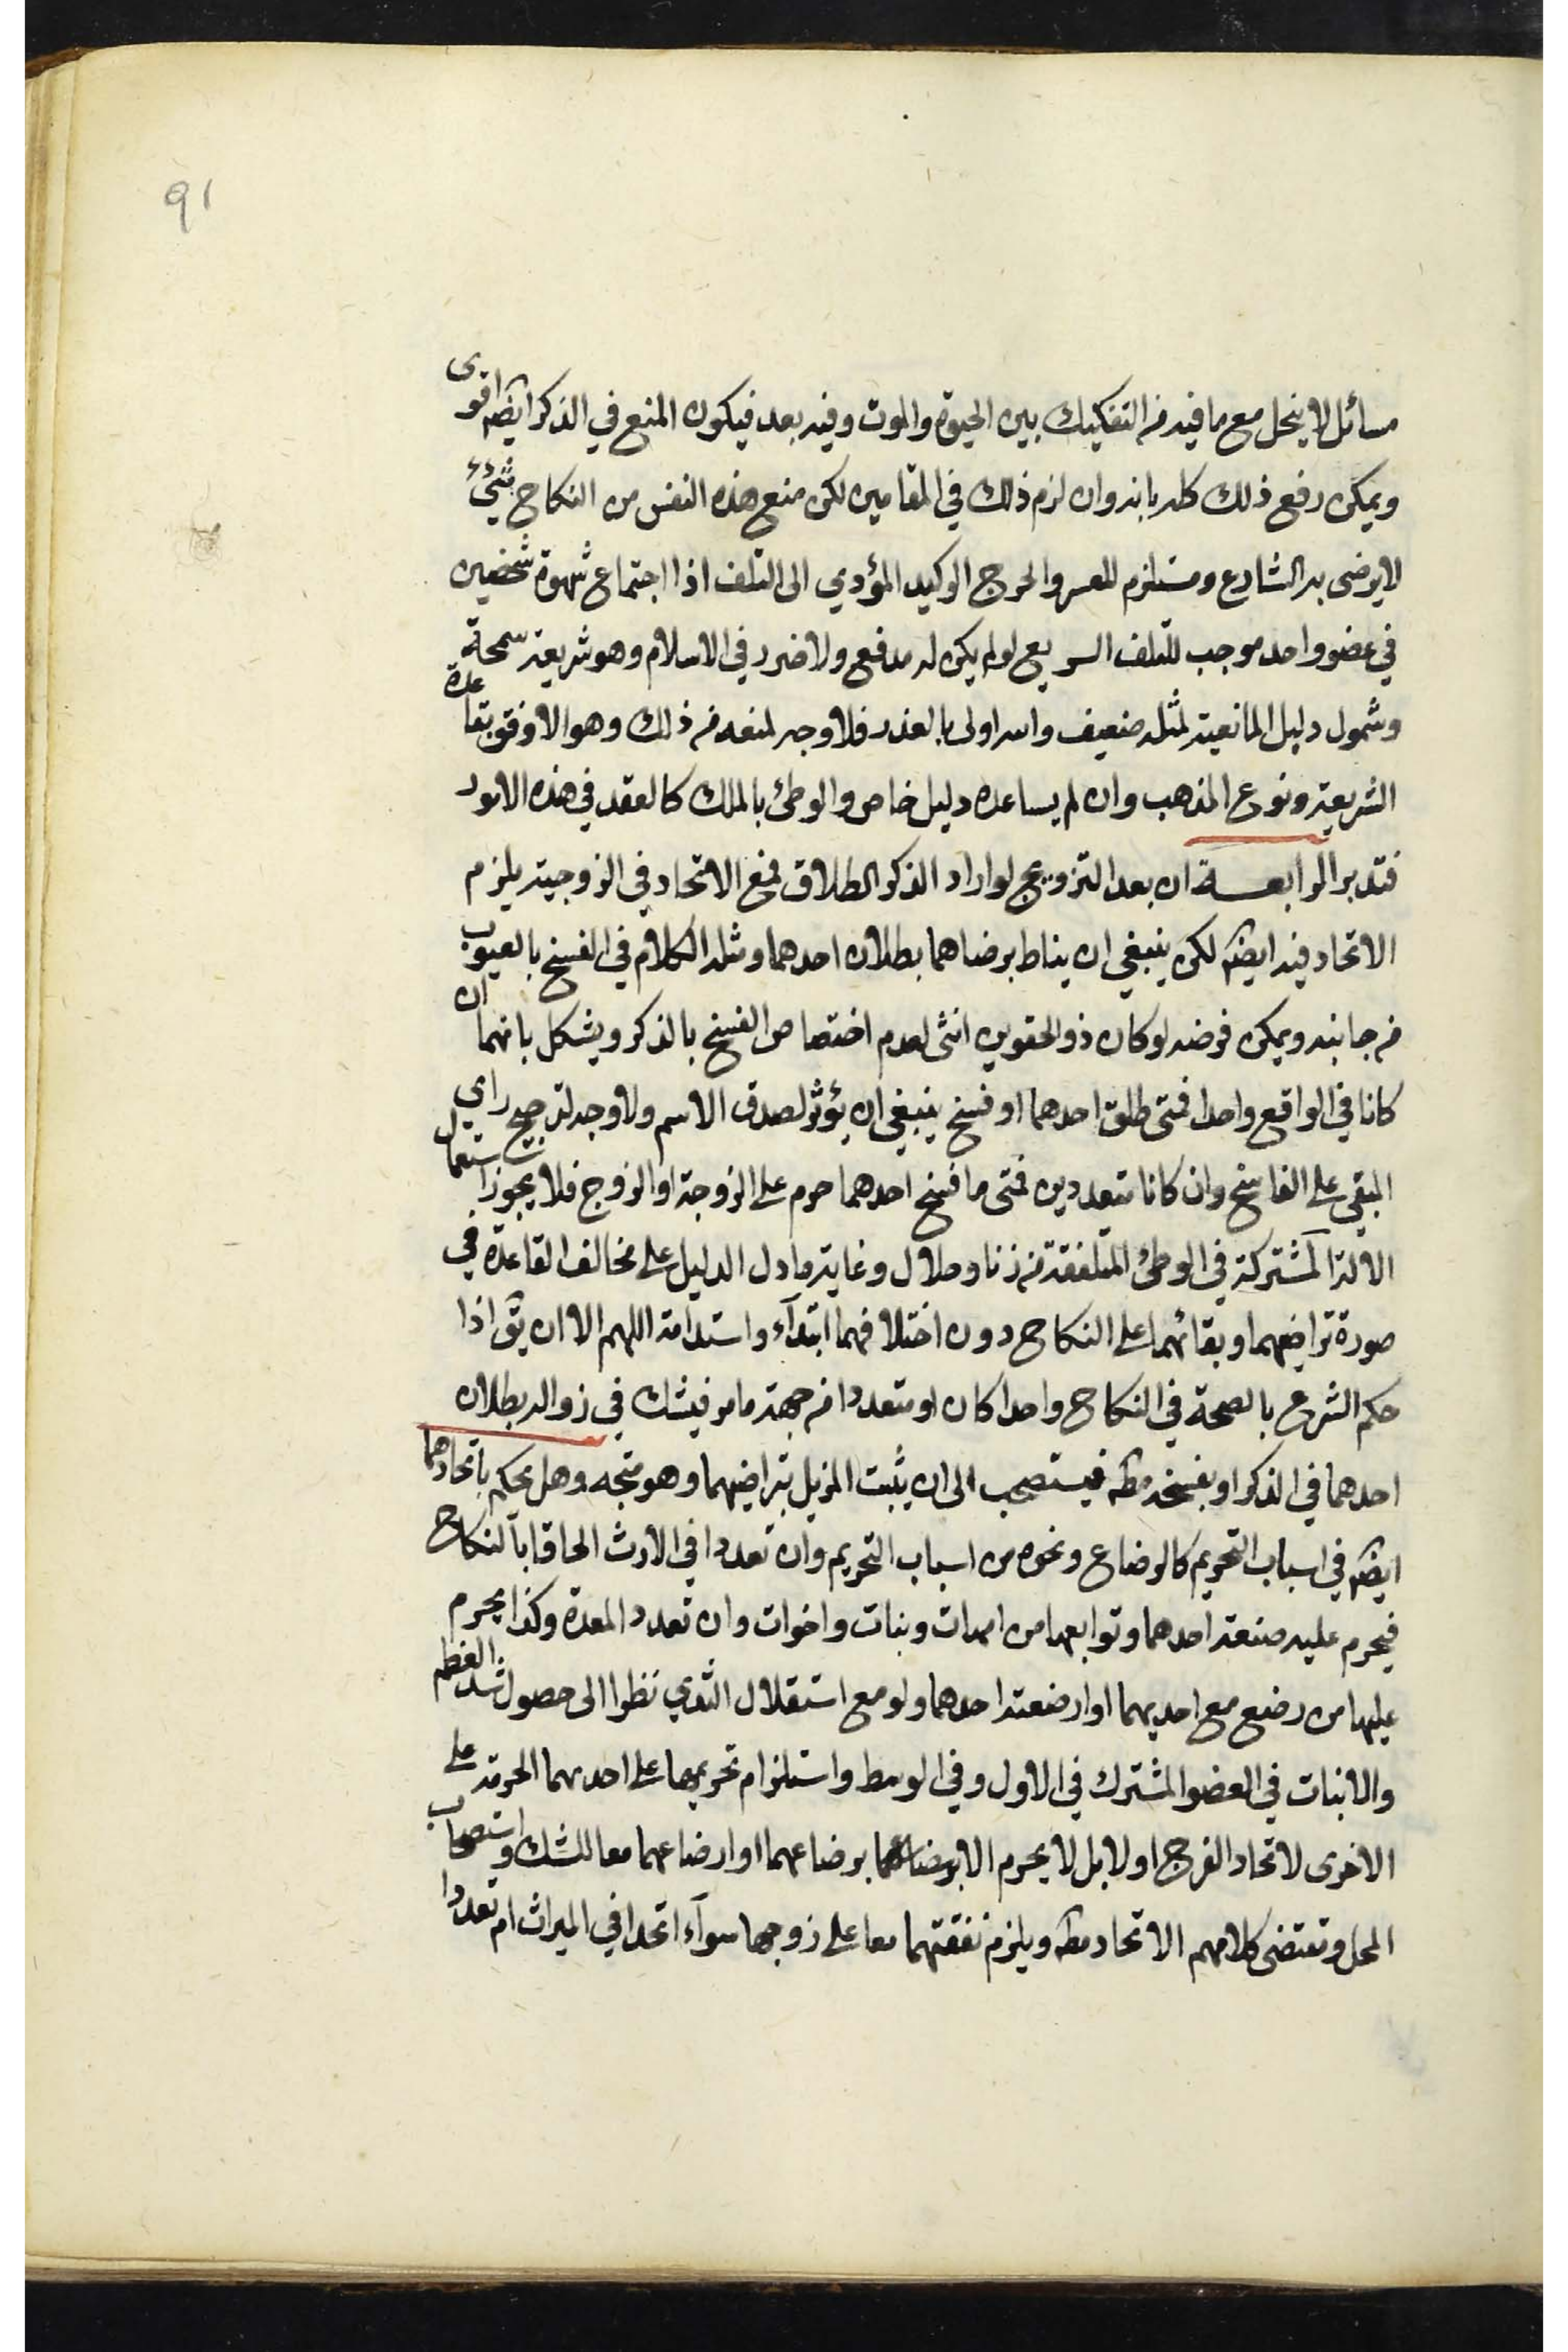 91
مسائل لا ينحل مع ما فيه من التفكيك بين الحيوة والموت وفيه بعد فيكون المنع في الذكر ايضه اقوى
ويمكن رفع ذلك كله بانه وان لزم ذلك في المقامين لكن منع هذه النفس من النكاح شيئ
لا يرضى به الشارع ومستلزم للعسر والحرج الوكيد المؤدي الى التلف اذا اجتماع شهوة شخصين
في عضو واحد موجب للتلف السريع لو لم يكن له مدفع ولا ضرر في الاسلام وهو شريعة سمحة
وشمول دليل المانعية لمثله ضعيف والله اولى بالعذر فلا وجه لمنعه من ذلك وهو الاوفق بقاعدة
الشريعة ونوع المذهب وان لم يساعده دليل خاص والوطئ بالملك كالعقد في هذه الامور
فتدبر الرابعة ان بعد التزويج لو اراد الذكر الطلاق فمع الاتحاد في الزوجية يلزم
الاتحاد فيه ايضه لكن ينبغي ان يناط برضاهما بطلان احدهما ومثله الكلام في الفسخ بالعيوب
من جانبه ويمكن فرضه لو كان ذو الحقوين انثى لعدم اختصاص الفسخ بالذكر ويشكل بانهما ان
كانا في الواقع واحدا فمتى طلق احدهما او فسخ ينبغي ان يؤثر لصدق الاسم ولا وجه لترجيح راي
المبقي على الفاسخ وان كانا متعددين فمتى ما فسخ احدهما حرم على الزوجة او الزوج فلا يجوز استعمال
الالة المشتركة في الوطئ المتلفقة من زنا وحلال وغاية ما دل الدليل على مخالف القاعدة في
صورة تراضيهما وبقائهما على النكاح دون اختلافهما ابتدآء واستدامة اللهم الا ان يق اذا
حكم الشرع بالصحة في النكاح واحدا كان او متعددا من جهة ما مر فيشك في زواله بطلان
احدهما في الذكر او بفسخه مطه فيستصحب الى ان يثبت المزيل بتراضيهما وهو متجه وهل يحكم باتحادهما
ايضه في اسباب التحريم كالرضاع ونحوه من اسباب التحريم وان تعددا في الارث الحاقا بالنكاح
فيحرم عليه صنعة احدهما وتوابعها من امهات وبنات واخوات وان تعدد المعدة وكذا يحرم
عليها من رضع مع احديهما او ارضعته احدهما ولو مع استقلال الثدي نظرا الى حصول شد العظم
والانبات في العضو المشترك في الاول وفي الوسط واستلزام تحريمها على احديهما الحرمة على
الاخرى لاتحاد الفرج اولا بل لا يحرم الا برضاعهما او ارضاعهما معا للشك واستصحاب
الحل وتقتضى كلامهم الاتحاد مطه ويلزم نفقتهما معا على زوجها سوآء اتحدا في الميراث ام تعددا